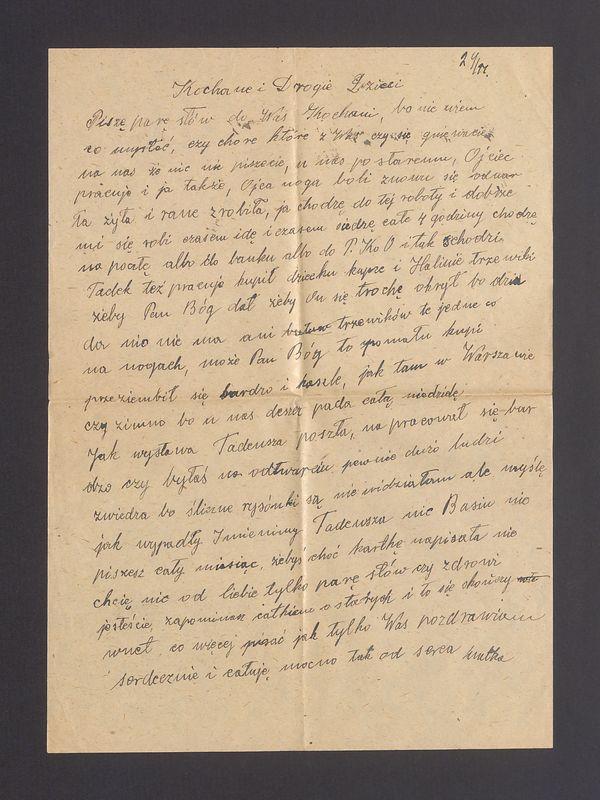 24/11
Kochane i Drogie Dzieci
Piszę parę słów do Was Kochani, bo nie wiem
co myśleć, czy chore które z Was czy się gniewacie
na nas że nic nie piszecie, u nas po staremu, Ojciec
pracuje i ja także, Ojca noga boli znowu się odwar
ła żyła i rane zrobiła, ja chodzę do tej roboty i dobrze
mi się robi czasem idę i czasem siedzę całe 4 godziny chodzę
na pocztę albo do banku albo do P.K.O i tak schodzi
Tadek też pracuje kupił dziecku kurze i Halinie trzewiki
żeby Pan Bóg dał żeby On się trochę okrył bo
da nio nic ma ani trzewików te jedne co
na nogach, może Pan Bóg to pomału kupi
przeziembił się bardzo i kaszle, jak tam w Warszawie
czy zimno bo u nas deszcz pada całą niedzielę
Jak wystawa Tadeusza poszła, na pracował się bar
dzo czy byłaś na odtwarciu pewnie dużo ludzi
zwiedza bo śliczne rysónki są nie widziałam ale myślę
jak wypadły Imieniny Tadeusza nic Basiu nie
piszesz cały miesiąc, żebyś choć kartkę napisała nie
chcię nic od Ciebie tylko parę słów czy zdrowi
jesteście, zapominasz całkiem o starych i to się skończy
wnet, co więcej pisać jak tylko Was pozdrawiam
serdecznie i całuję mocno tak od serca Matka